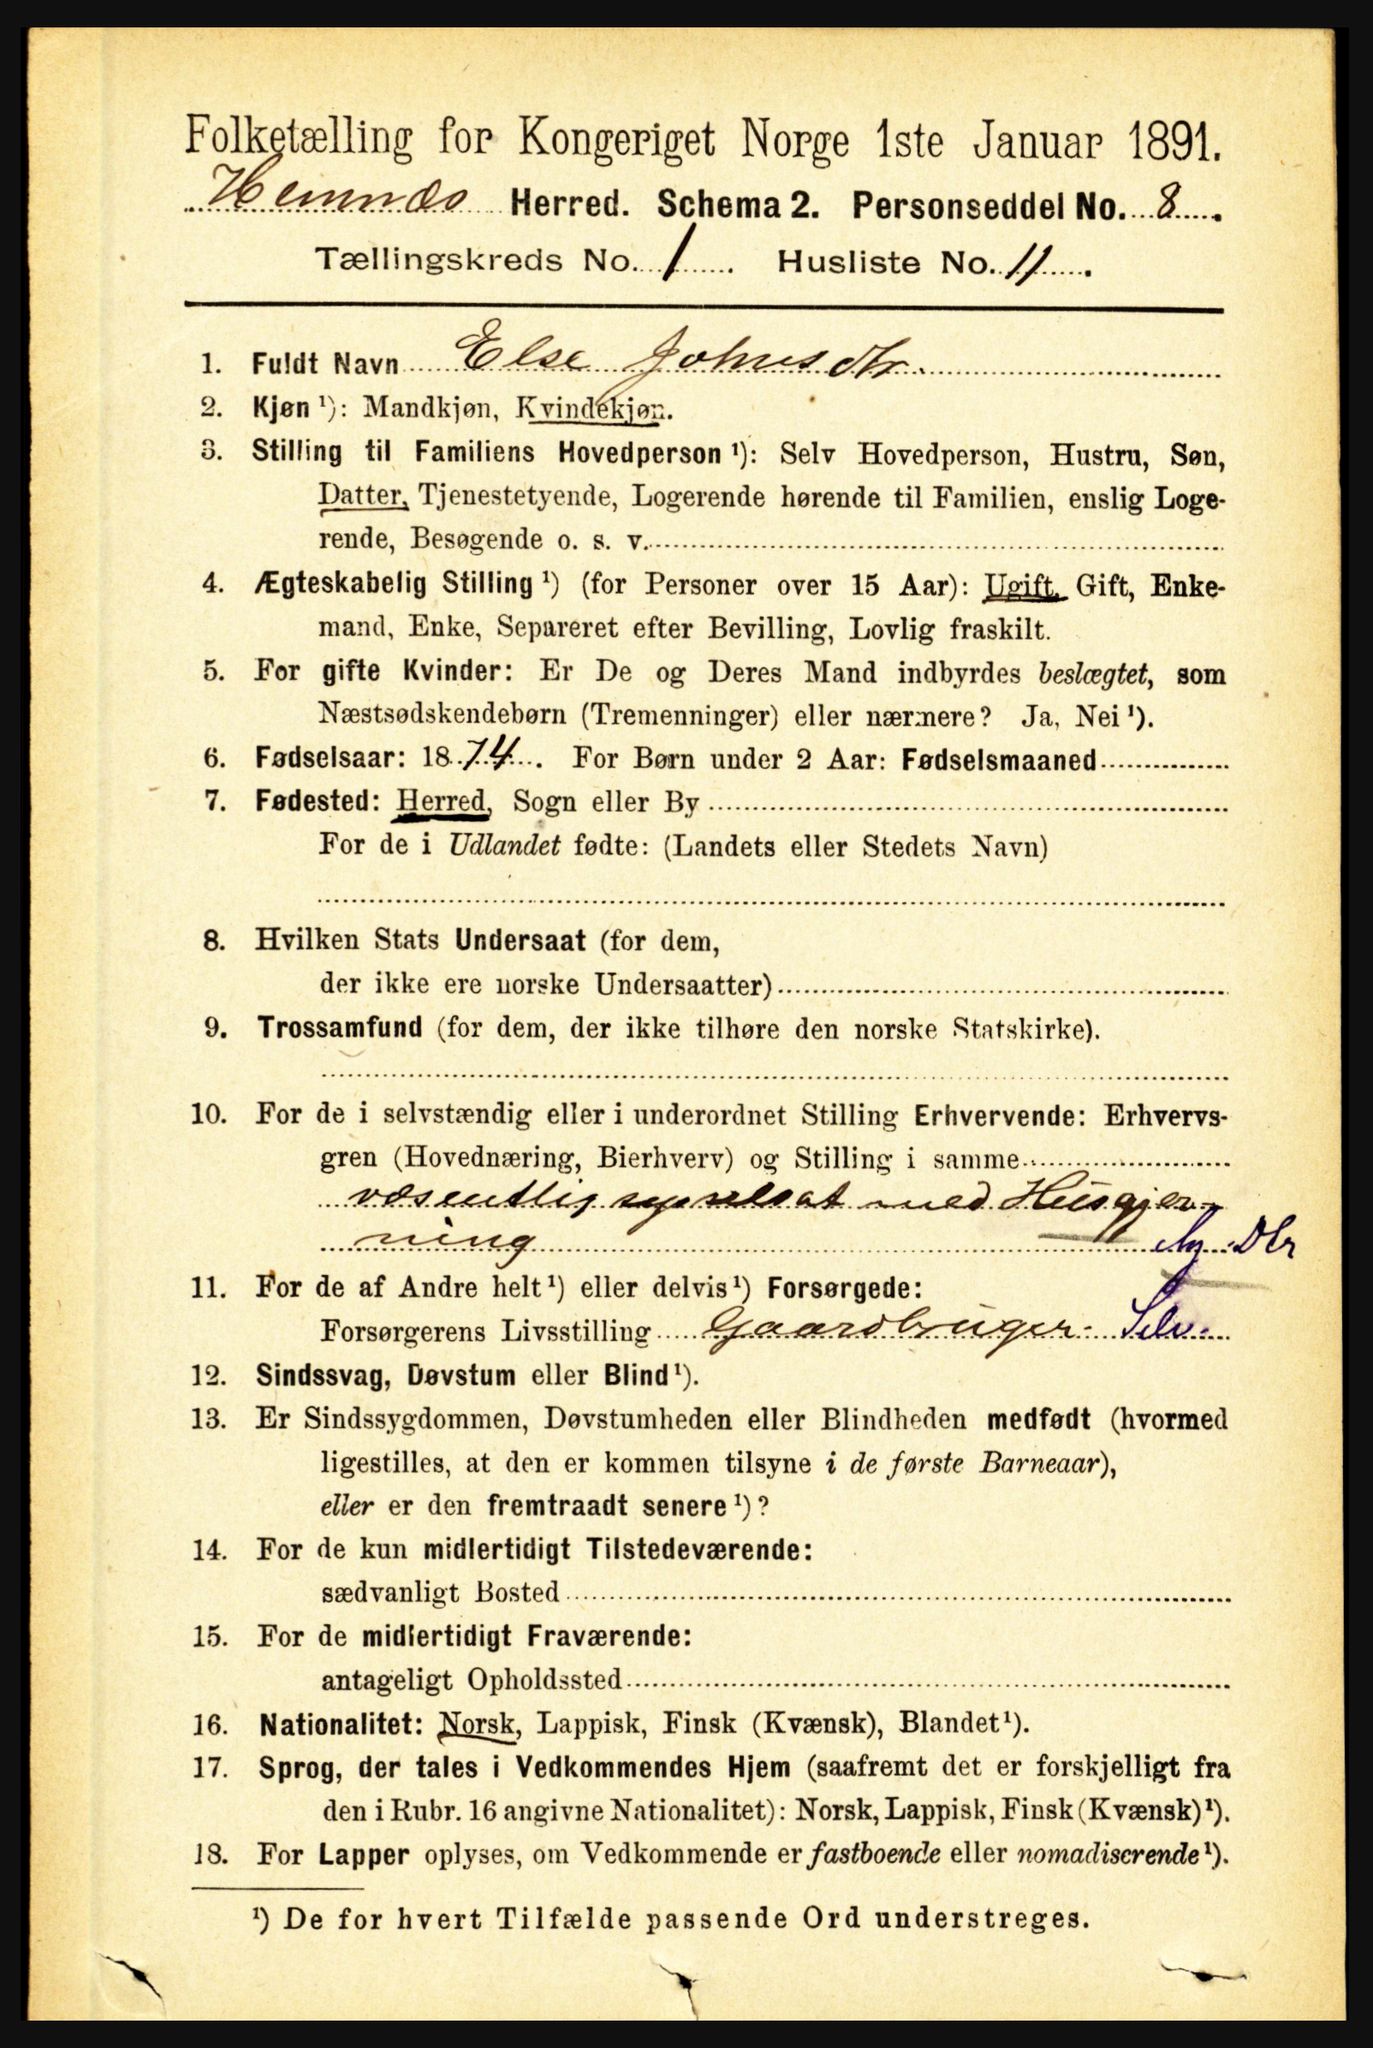 Folketælling for Kongeriget Norge 1ste Januar 1891.
Hemnæs Herred. Schema 2. Personseddel No. 8.
Tællingskreds No. 1. Husliste No. 11.
1. Fuldt Navn Else Johnsdtr.
2. Kjøn ¹): Mandkjøn, Kvindekjøn.
3. Stilling til Familiens Hovedperson ¹): Selv Hovedperson, Hustru, Søn,
Datter, Tjenestetyende, Logerende hørende til Familien, enslig Loge-
rende, Besøgende o. s. v.
4. Ægteskabelig Stilling ¹) (for Personer over 15 Aar): Ugift, Gift, Enke-
mand, Enke, Separeret efter Bevilling, Lovlig fraskilt.
5. For gifte Kvinder: Er De og Deres Mand indbyrdes beslægtet, som
Næstsødskendebørn (Tremenninger) eller nærmere? Ja, Nei ¹).
6. Fødselsaar: 1874. For Børn under 2 Aar: Fødselsmaaned
7. Fødested: Herred, Sogn eller By
For de i Udlandet fødte: (Landets eller Stedets Navn)
8. Hvilken Stats Undersaat (for dem,
der ikke ere norske Undersaatter)
9. Trossamfund (for dem, der ikke tilhøre den norske Statskirke).
10. For de i selvstændig eller i underordnet Stilling Erhvervende: Erhvervs-
gren (Hovednæring, Bierhverv) og Stilling i samme
væsentlig sysselsat med Husgjer-
ning Dtr
11. For de af Andre helt ¹) eller delvis ¹) Forsørgede:
Forsørgerens Livsstilling Gaardbruger. Selv.
12. Sindssvag, Døvstum eller Blind ¹).
13. Er Sindssygdommen, Døvstumheden eller Blindheden medfødt (hvormed
ligestilles, at den er kommen tilsyne i de første Barneaar),
eller er den fremtraadt senere ¹)?
14. For de kun midlertidigt Tilstedeværende:
sædvanligt Bosted
15. For de midlertidigt Fraværende:
antageligt Opholdssted
16. Nationalitet: Norsk, Lappisk, Finsk (Kvænsk), Blandet ¹).
17. Sprog, der tales i Vedkommendes Hjem (saafremt det er forskjelligt fra
den i Rubr. 16 angivne Nationalitet): Norsk, Lappisk, Finsk (Kvænsk) ¹).
18. For Lapper oplyses, om Vedkommende er fastboende eller nomadiserende ¹).
¹) De for hvert Tilfælde passende Ord understreges.